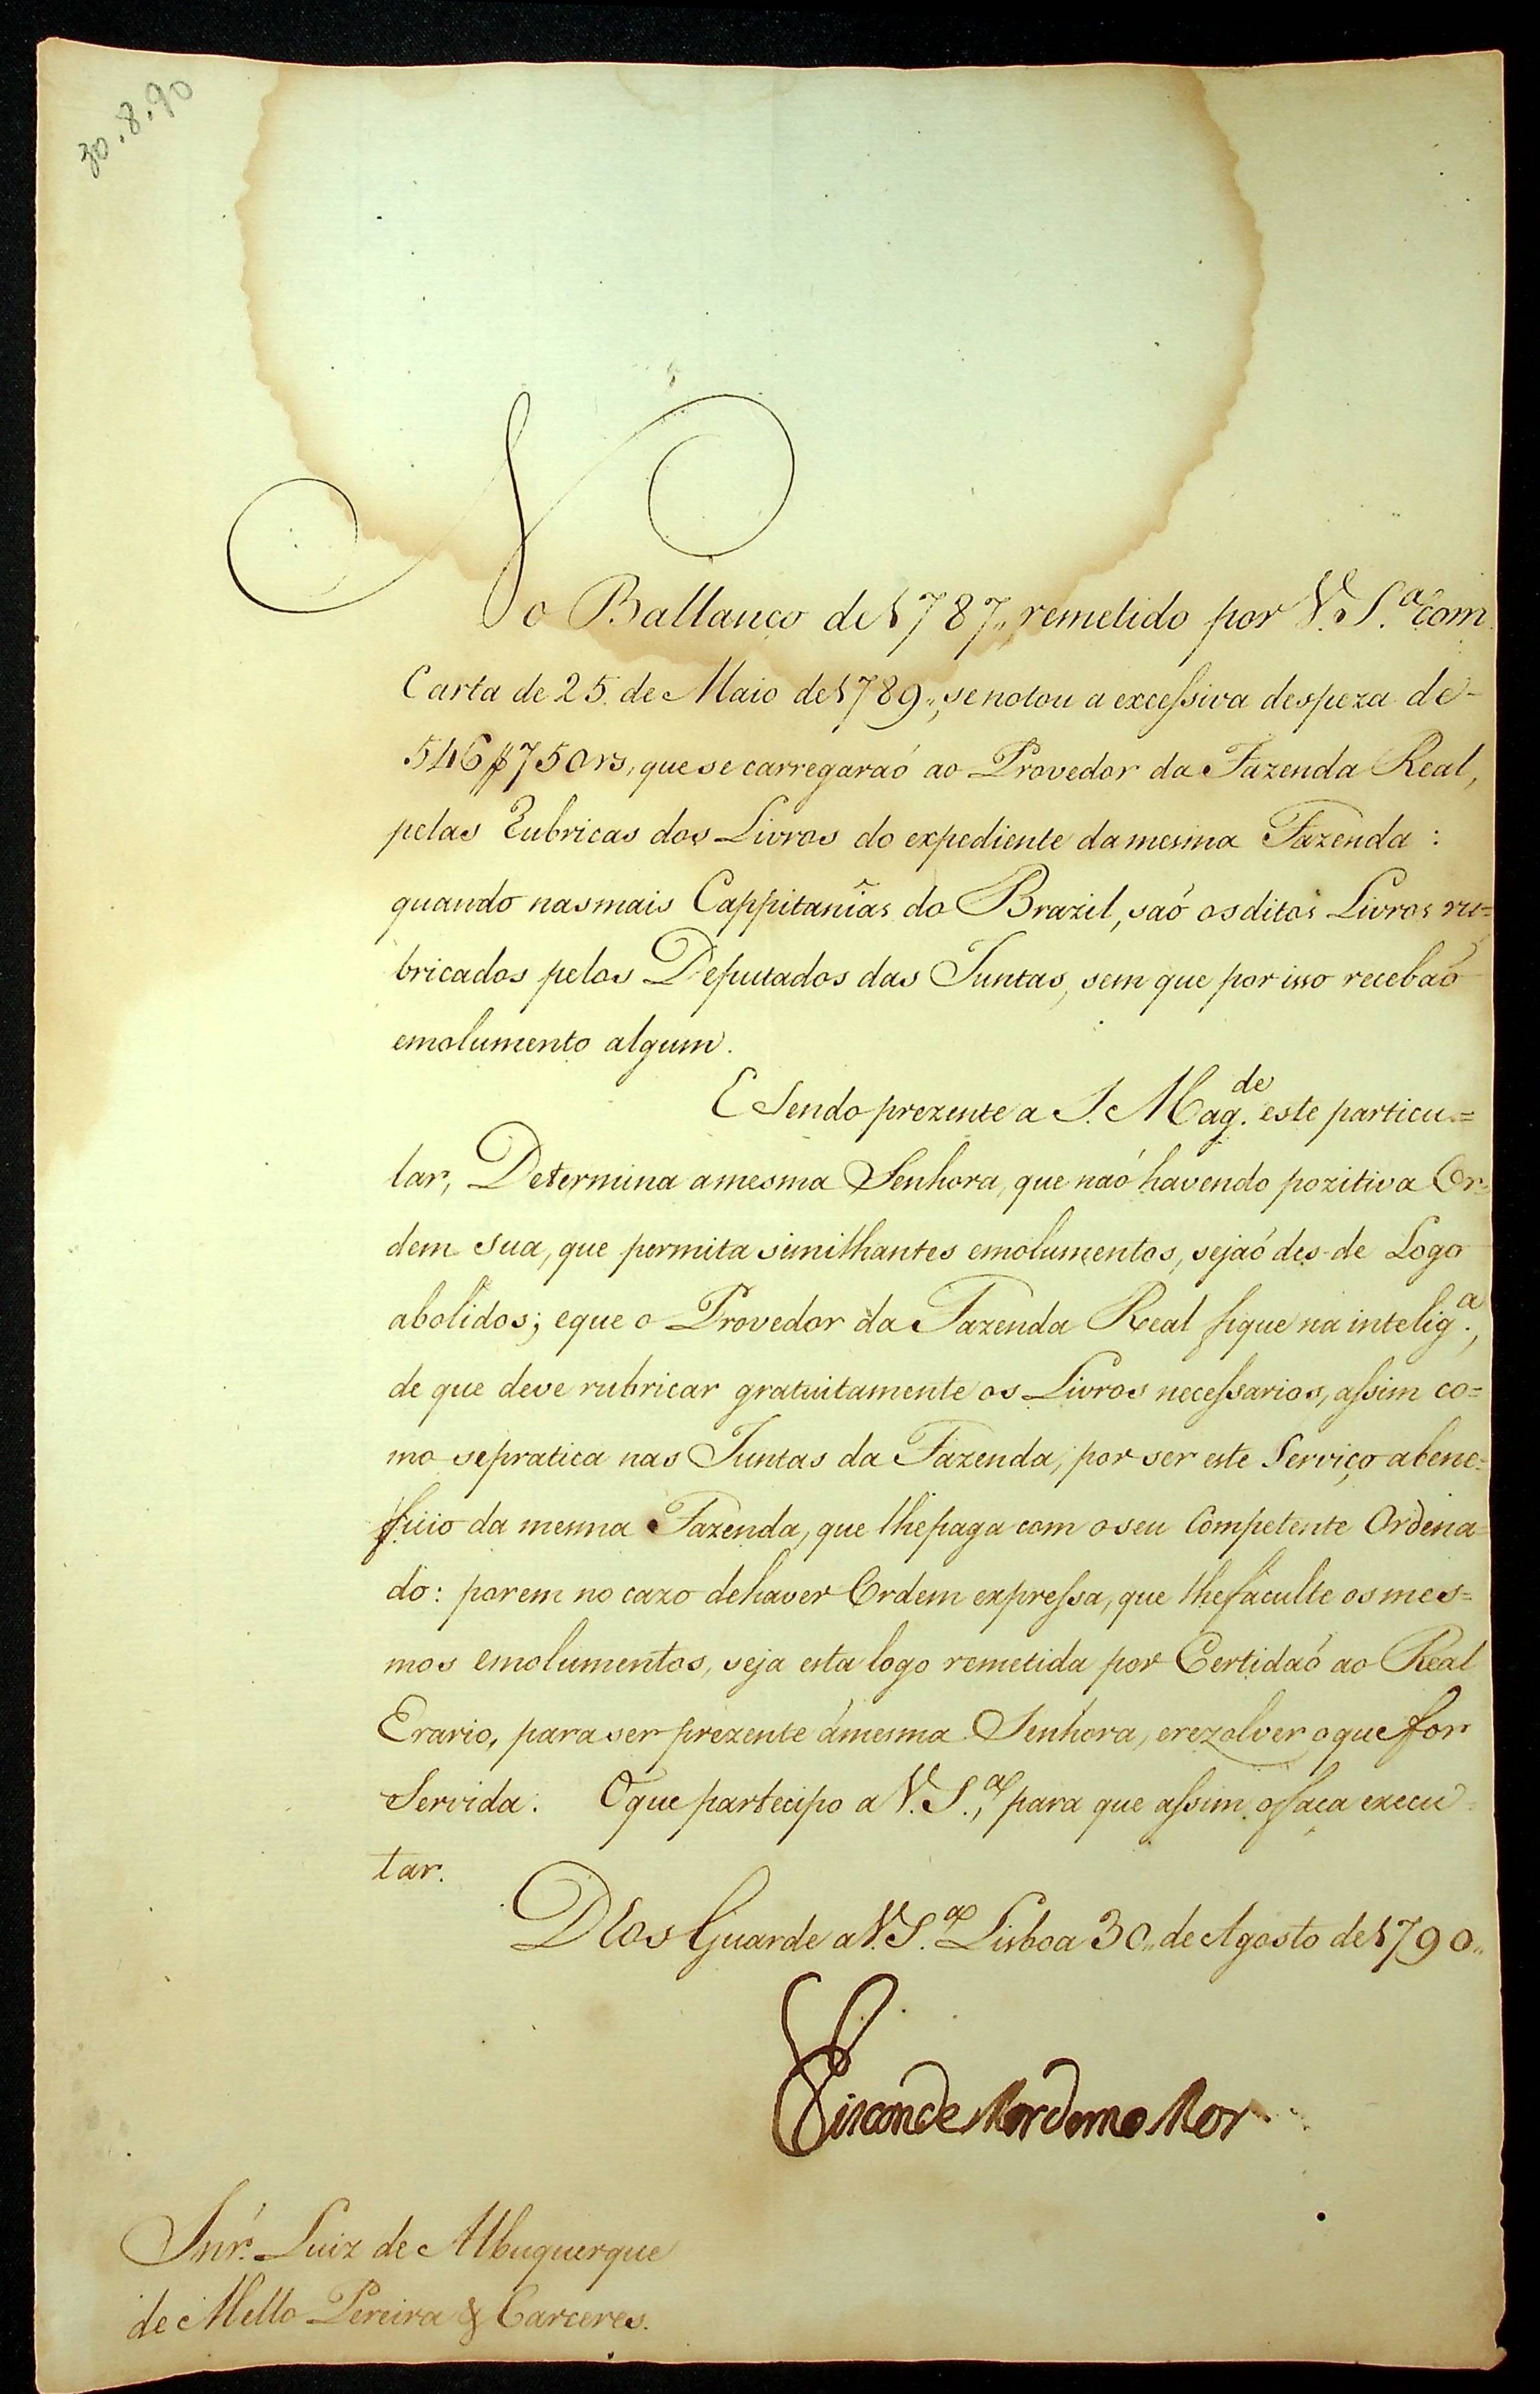 30.8.90
No Ballanço de 1787,, remetido por V. S.ª com
Carta de 25. de Maio de 1789,, se notou a excessiva despeza de
546$750 rs, que se carregaraó ao Provedor da Fazenda Real,
pelas Rubricas dos Livros do expediente da mesma Fazenda :
quando nas mais Cappitanĩas do Brazil, saó os ditos Livros ru=
bricados pelos Deputados das Juntas, sem que por isso recebaó
emolumento algum.
E Sendo prezente a S. Mag.de este particu=
lar, Determina a mesma Senhora, que naó havendo pozitiva Or=
dem sua, que permita similhantes emolumentos, sejaó des de Logo
abolidos; e que o Provedor da Fazenda Real fique na intelig.ª,
de que deve rubricar gratuitamente os Livros necessarios, assim co=
mo se pratica nas Juntas da Fazenda, por ser este Serviço a bene=
ficio da mesma Fazenda, que lhe paga com o seu Competente Ordena=
do: porem no cazo de haver Ordem expressa, que lhe faculte os mes=
mos emolumentos, seja esta logo remetida por Certidaó ao Real
Erario, para ser prezente á mesma Senhora, e rezolver o que for
Servida. O que partecipo a V. S.ª, para que assim o faça execu=
tar.
D̃os Guarde a V. S.ª Lisboa 30,, de Agosto de 1790,,
Visconde Mordomo Mor
Snr. Luiz de Albuquerque
de Mello Pereira & Carceres.